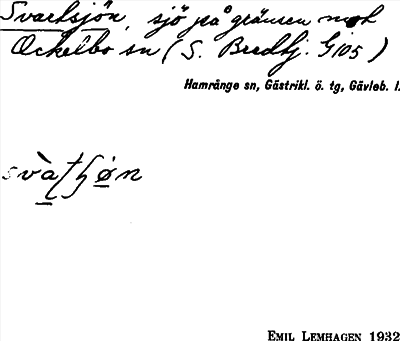 Svartsjön, sjö på gränsen mot
Ockelbo sn (S. Bredhj. G 105)
Hamrånge sn, Gästrikl. ö. tg, Gävleb. l.
EMIL LEMHAGEN 1932